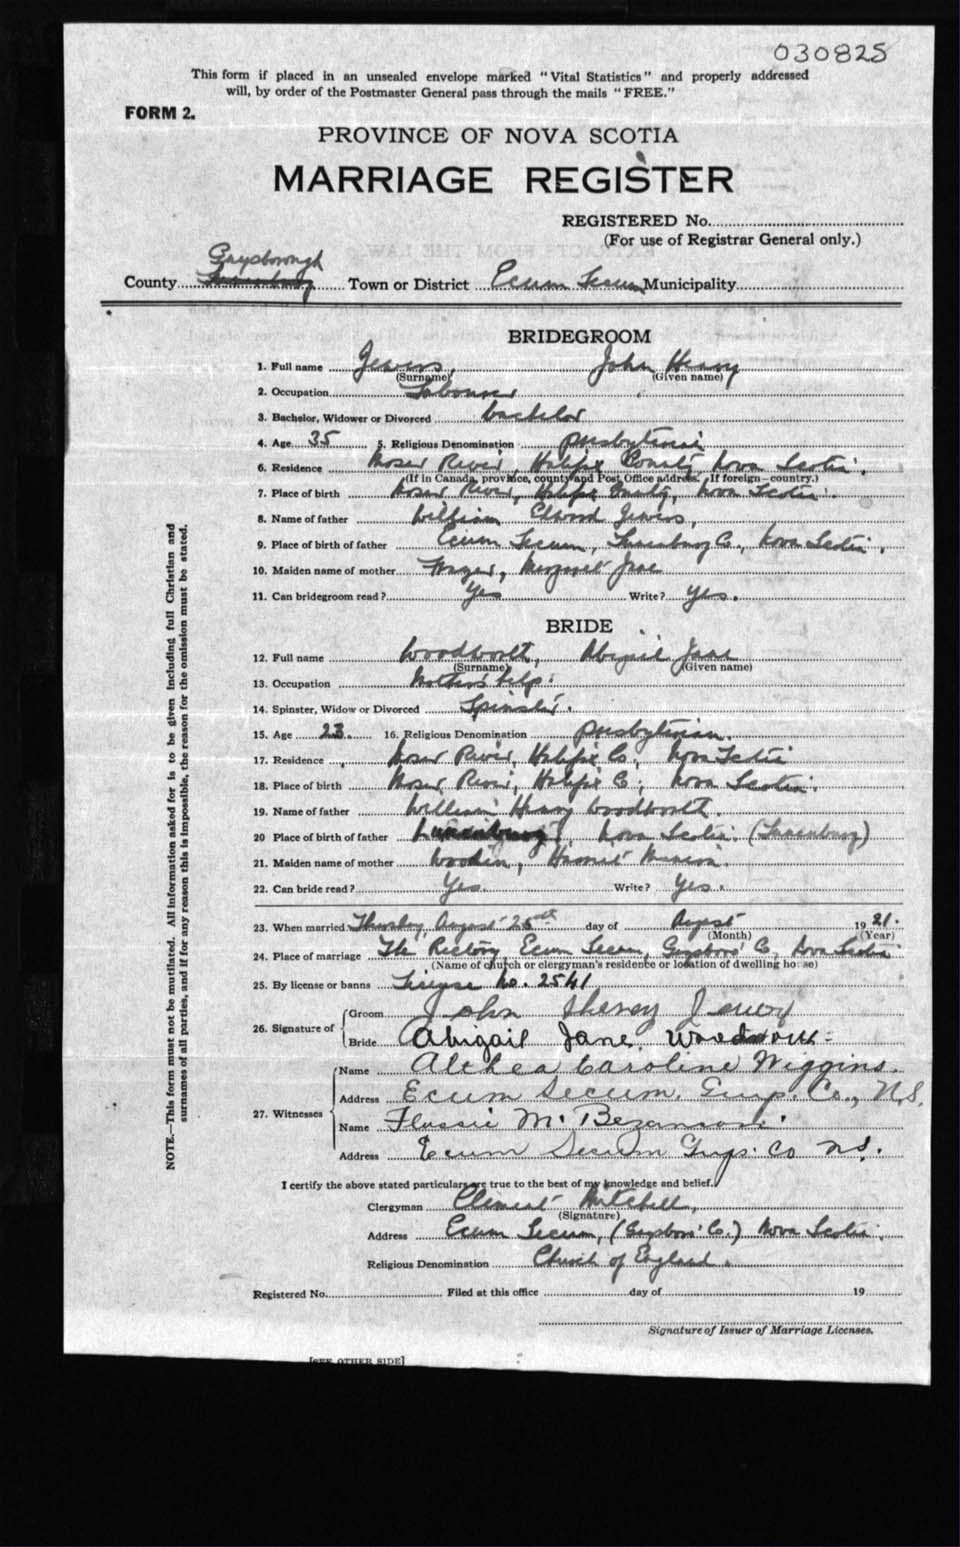 030825
This form if placed in an unsealed envelope marked "Vital Statistics" and properly addressed
will, by order of the Postmaster General pass through the mails "FREE."
FORM 2.
PROVINCE OF NOVA SCOTIA
MARRIAGE REGISTER
REGISTERED No.
(For use of Registrar General only.)
Guysborough
County Lunenburg Town or District Ecum Secum Municipality
BRIDEGROOM
1. Full name Jewers, John Henry
(Surname) (Given name)
2. Occupation Labourer
3. Bachelor, Widower or Divorced bachelor
4. Age 35 5. Religious Denomination presbyterian
6. Residence Moser River, Halifax County, Nova Scotia.
(If in Canada, province, county and Post Office address. If foreign—country.)
7. Place of birth Moser River, Halifax County, Nova Scotia.
8. Name of father William Elwood Jewers,
9. Place of birth of father Ecum Secum, Lunenburg Co., Nova Scotia,
10. Maiden name of mother Frazer, Margaret Jane
11. Can bridegroom read? Yes Write? Yes.
BRIDE
12. Full name Woodworth, Abigail Jane
(Surname) (Given name)
13. Occupation Mother's help.
14. Spinster, Widow or Divorced Spinster.
15. Age 23. 16. Religious Denomination presbyterian.
17. Residence Moser River, Halifax Co., Nova Scotia
18. Place of birth Moser River, Halifax Co., Nova Scotia.
19. Name of father William Henry Woodworth.
20 Place of birth of father Lunenburg, Nova Scotia. (Lunenburg)
21. Maiden name of mother Harriet
22. Can bride read? Yes. Write? Yes.
23. When married Thursday, August 25th day of August 1921.
(Month) (Year)
24. Place of marriage The Rectory, Ecum Secum, Guysboro' Co, Nova Scotia
(Name of church or clergyman's residence or location of dwelling house)
25. By license or banns License No. 2541
26. Signature of Groom John Henry Jewers
Bride Abigail Jane Woodworth
27. Witnesses Name Althea Caroline Wiggins.
Address Ecum Secum, Guys. Co., N.S.
Name Flossie M. Bezanson.
Address Ecum Secum Guys. Co N.S.
I certify the above stated particulars are true to the best of my knowledge and belief.
Clergyman Clement Mitchell,
(Signature)
Address Ecum Secum, (Guysboro' Co.) Nova Scotia.
Religious Denomination Church of England.
Registered No. Filed at this office day of 19
Signature of Issuer of Marriage Licenses.
[SEE OTHER SIDE]
NOTE.—This form must not be mutilated. All information asked for is to be given including full Christian and
surnames of all parties, and if for any reason this is impossible, the reason for the omission must be stated.